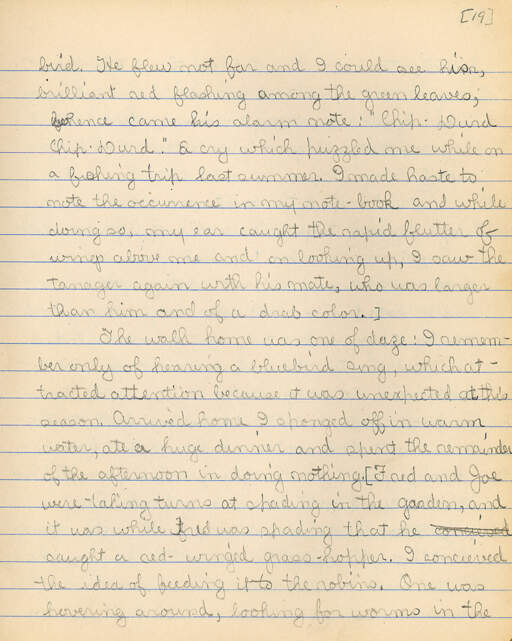 [19]
bird. He flew not far and I could see his,
brilliant red flashing among the green leaves;
whence came his alarm note: "Chip-Durd
Chip-Durd." A cry which puzzled me while on
a fishing trip last summer. I made haste to
note the occurrence in my note-book and while
doing so, my ear caught the rapid flutter of
wings above me and on looking up, I saw the
tanager again with his mate, who was larger
than him and of a drab color.]
The walk home was one of daze: I remem-
ber only of hearing a bluebird sing, which at-
tracted attention because it was unexpected at this
season. Arrived home I sponged off in warm
water, ate a huge dinner and spent the remainder
of the afternoon in doing nothing. [Fred and Joe
were taking turns at spading in the garden, and
it was while Fred was spading that he
caught a red-winged grass-hopper. I concieved
the idea of feeding it to the robins. One was
hovering around, looking for worms in the